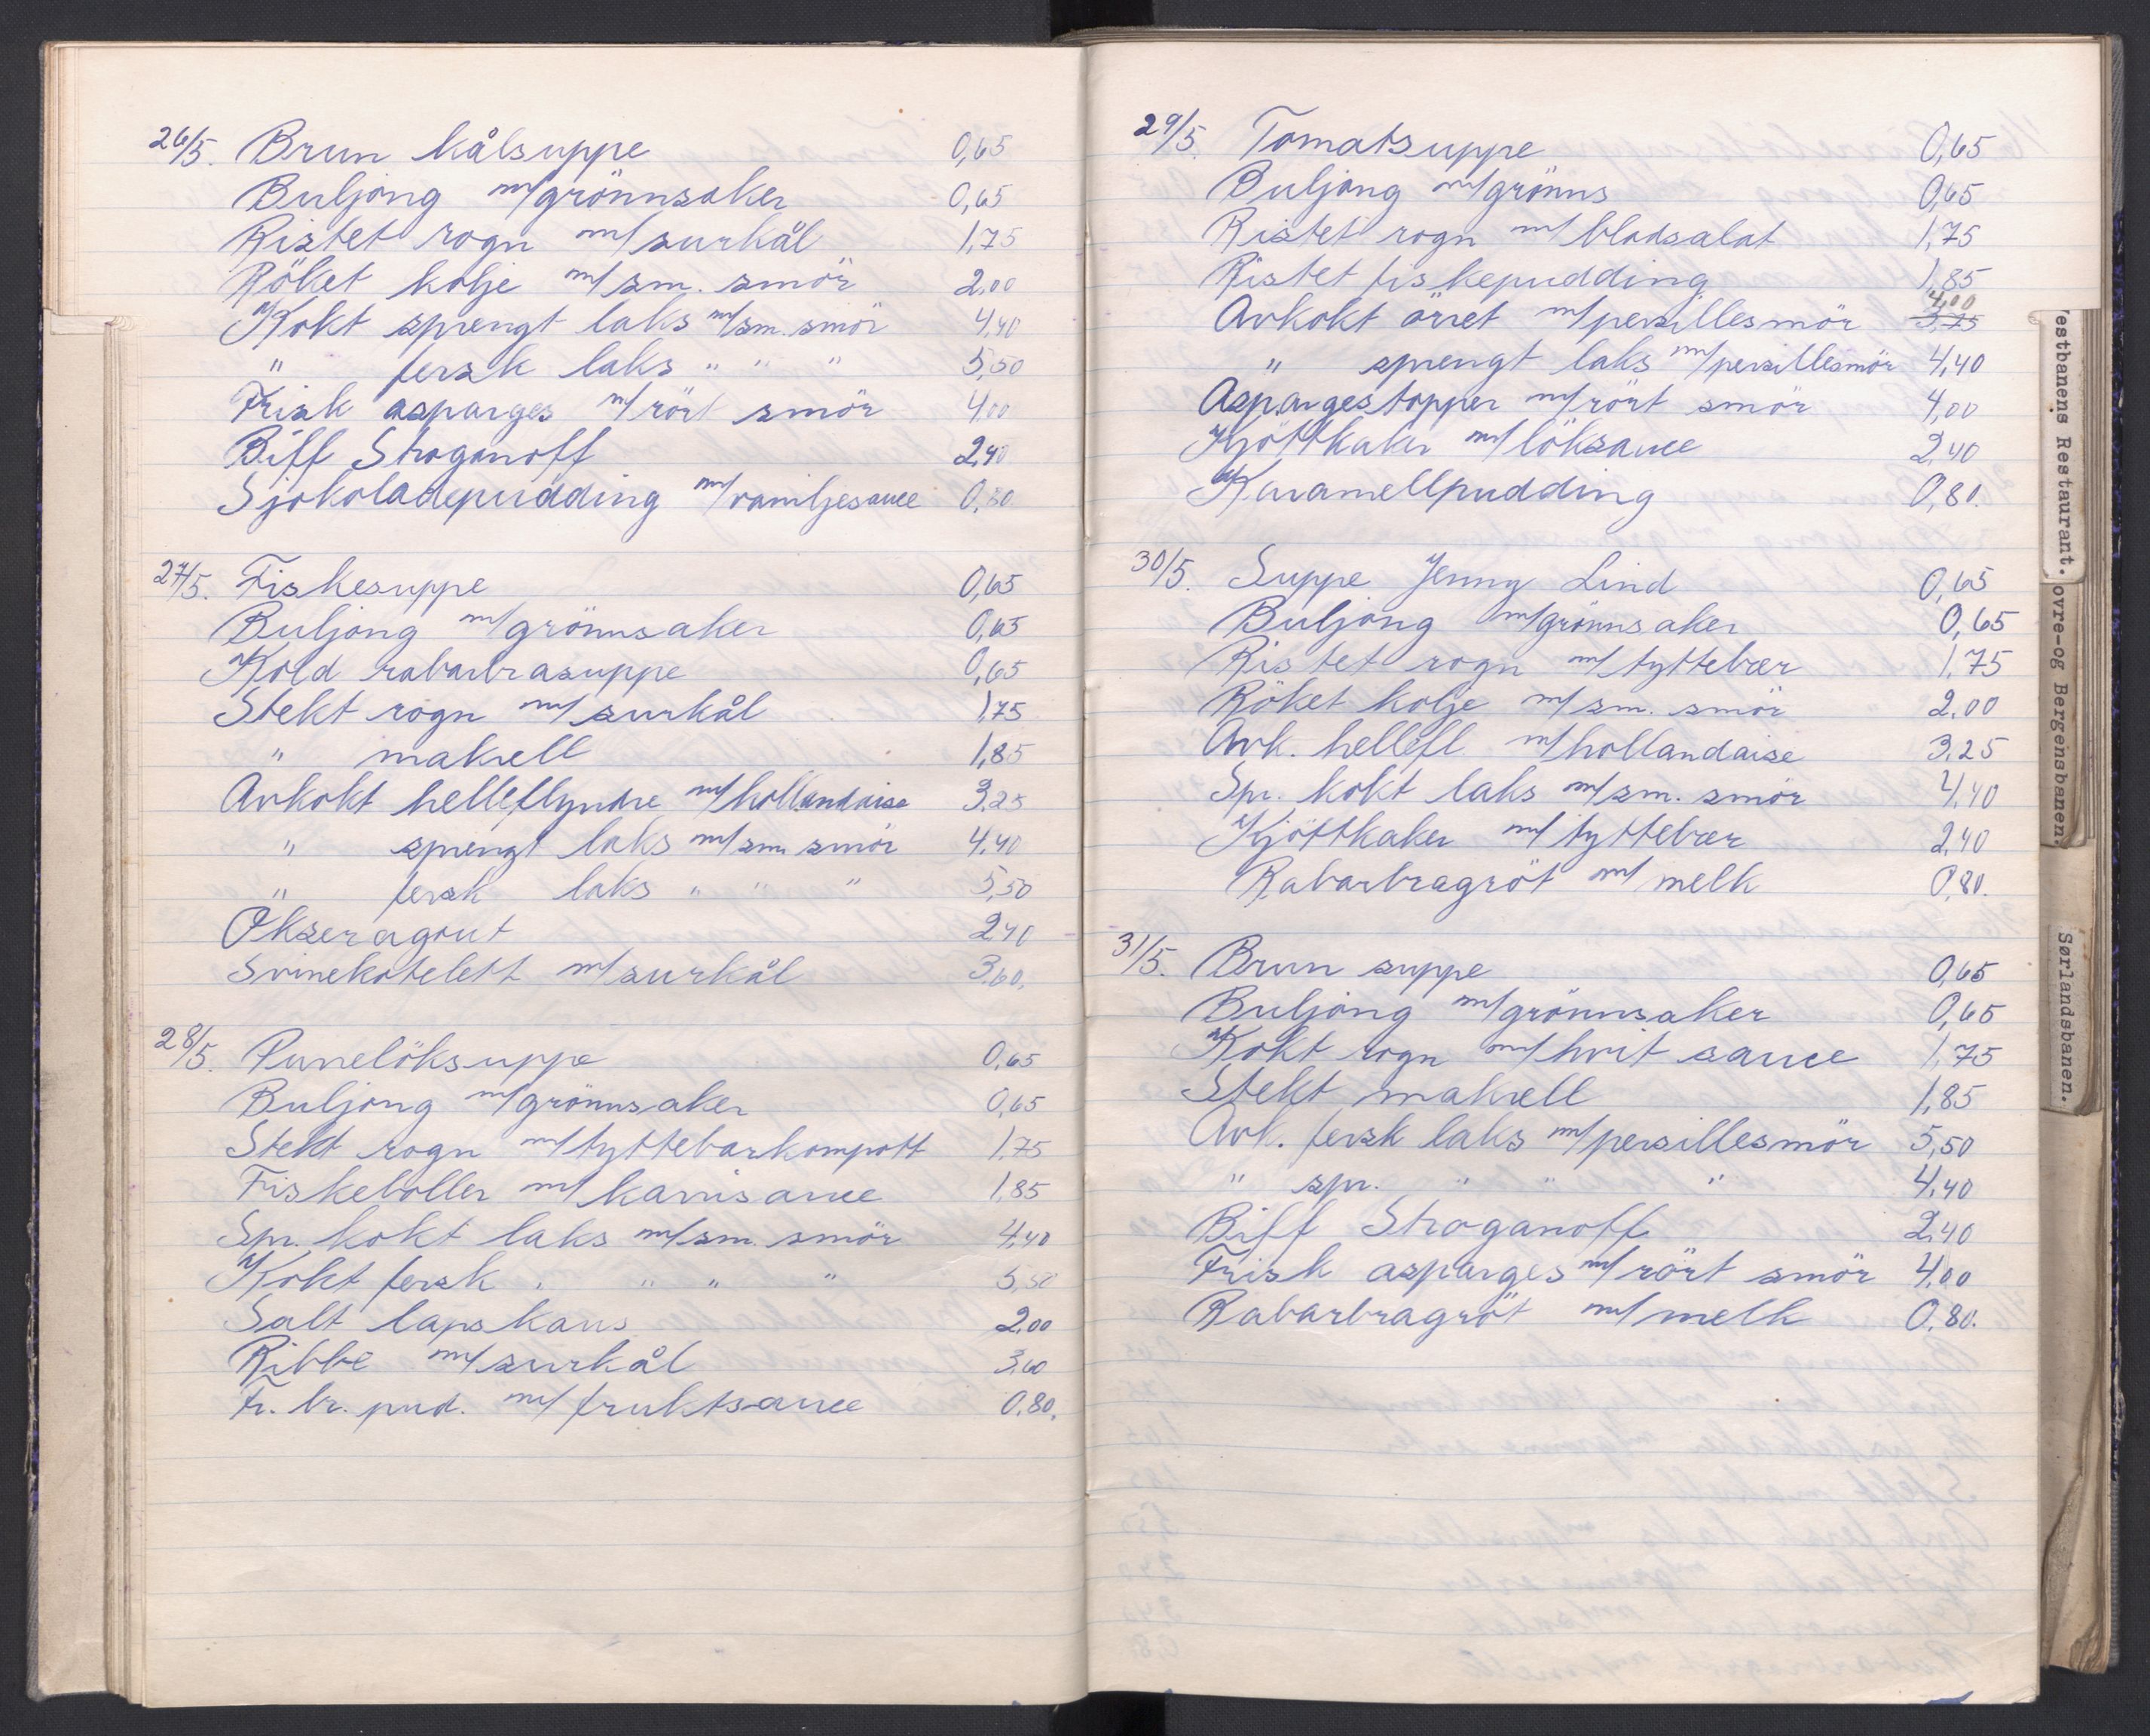 26/5. Brun kålsuppe 0,65
Buljong m/grönnsaker 0,65
Ristet rogn m/surkål 1,75
Röket kolje m/sm. smör 2,00
Kokt sprengt laks m/sm. smör 4,40
" fersk laks " " " 5,50
Frisk asparges m/rört smör 4,00
Biff Stroganoff 2,40
Sjokoladepudding m/vaniljesauce 0,80
27/5. Fiskesuppe 0,65
Buljong m/grönnsaker 0,65
Kold rabarbrasuppe 0,65
Stekt rogn m/surkål 1,75
" makrell 1,85
Avkokt helleflyndre m/hollandaise 3,25
" sprengt laks m/sm smör 4,40
" fersk laks " " " 5,50
Okseragout 2,40
Svinekotelett m/surkål 3,60.
28/5. Purrelöksuppe 0,65
Buljong m/grönnsaker 0,65
Stekt rogn m/tyttebærkompott 1,75
Fiskeboller m/karrisauce 1,85
Spr. kokt laks m/sm. smör 4,40
Kokt fersk " " " " 5,50
Salt lapskaus 2,00
Ribbe m/surkål 3,60
Fr. br. pud. m/fruktsauce 0,80.
29/5. Tomatsuppe 0,65
Buljong m/grönns 0,65
Ristet rogn m/bladsalat 1,75
Ristet fiskepudding 1,85
4,00
Avkokt örret m/persillesmör 3,75
" sprengt laks m/persillesmör 4,40
Aspargestopper m/rört smör 4,00
Kjöttkaker m/löksauce 2,40
Karamellpudding 0,80.
30/5. Suppe Jenny Lind 0,65
Buljong m/grönnsaker 0,65
Ristet rogn m/tyttebær 1,75
Röket kolje m/sm. smör 2,00
Avk. hellefl m/hollandaise 3,25
Spr. kokt laks m/sm. smör 4,40
Kjöttkaker m/tyttebær 2,40
Rabarbragröt m/melk 0,80.
31/5. Brun suppe 0,65
Buljong m/grönnsaker 0,65
Kokt rogn m/hvit sauce 1,75
Stekt makrell 1,85
Avk. fersk laks m/persillesmör 5,50
" spr. " " " 4,40
Biff Stroganoff 2,40
Frisk asparges m/rört smör 4,00
Rabarbragröt m/melk 0,80.
estbanens Restaurant.
ovre-og Bergensbanen.
Sørlandsbanen.